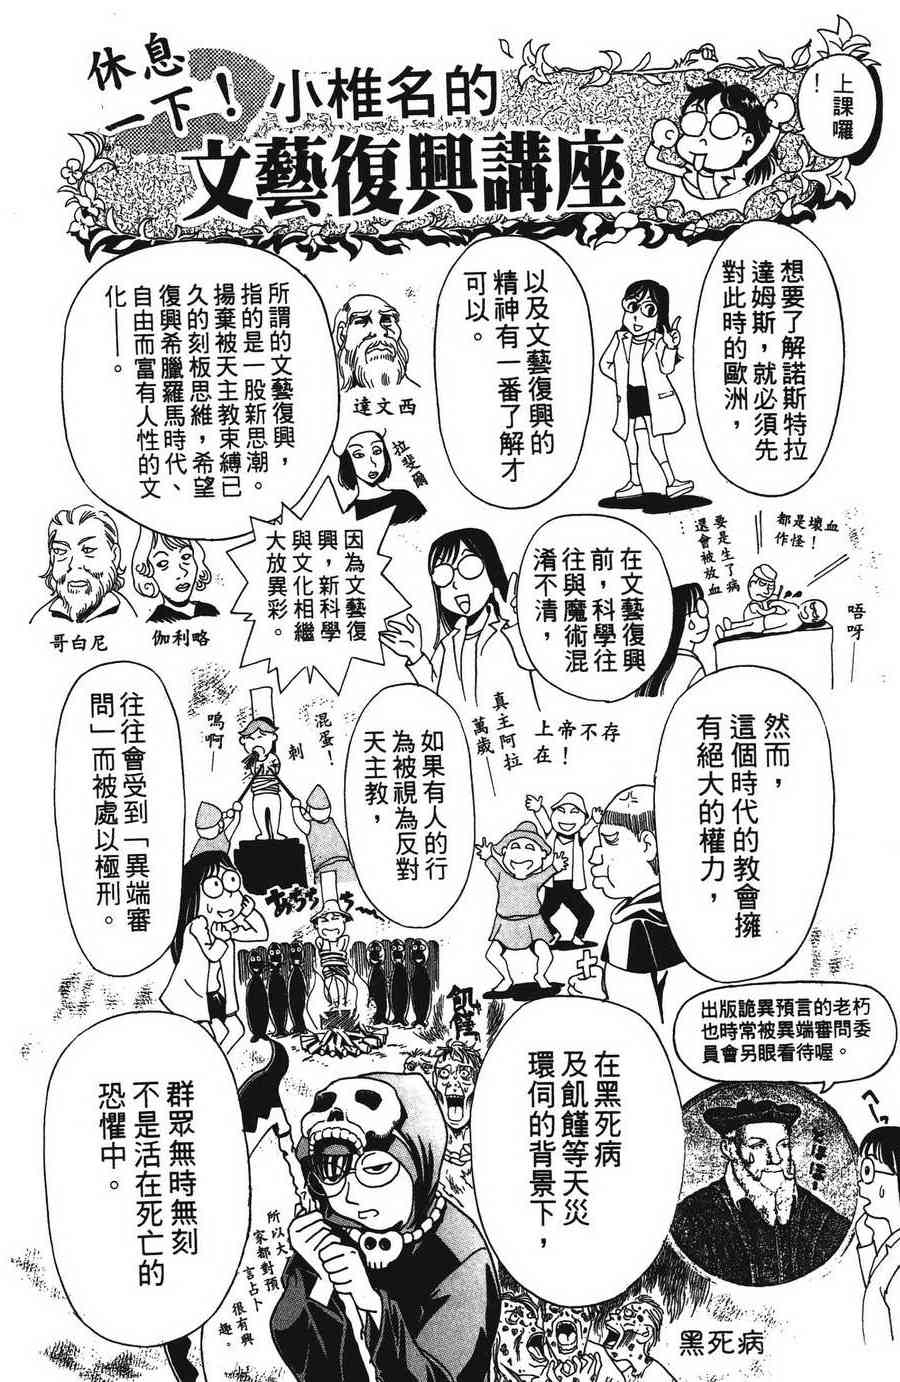 休息
一下！
小椎名的
文藝復興講座
上課囉
！
想要了解諾斯特拉
達姆斯，就必須先
對此時的歐洲，
以及文藝復興的
精神有一番了解才
可以。
所謂的文藝復興，
指的是一股新思潮。
揚棄被天主教束縛已
久的刻板思維，希望
復興希臘羅馬時代、
自由而富有人性的文
化——。
達文西
拉斐爾
哥白尼
伽利略
都是壞血
作怪！
要是生了病
還會被放血
…
唔呀
在文藝復興
前，科學往
往與魔術混
淆不清，
因為文藝復
興，新科學
與文化相繼
大放異彩。
然而，
這個時代的教會擁
有絕大的權力，
上帝不存
在！
真主阿拉
萬歲——
如果有人的行
為被視為反對
天主教，
混蛋！
刺
嗚啊
往往會受到「異端審
問」而被處以極刑。
あちちち
出版詭異預言的老朽
也時常被異端審問委
員會另眼看待喔。
とほほ
へーっ
飢饉
在黑死病
及飢饉等天災
環伺的背景下，
群眾無時無刻
不是活在死亡的
恐懼中。
所以大
家都對預
言占卜
很有興
趣。
黑死病